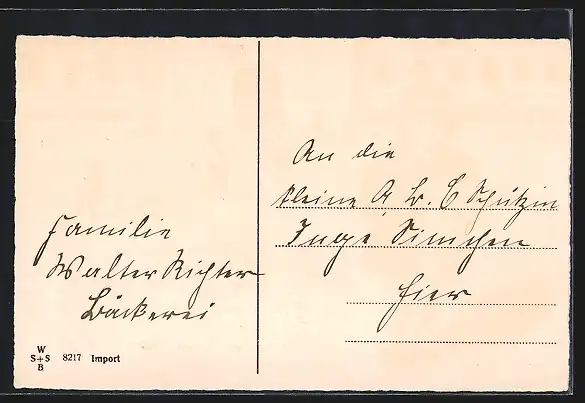 Familie
Walter Richter
Bäckerei
An die
kleine A. B. C Schützin
Inge Simchen
hier
W
S+S
B
8217 Import